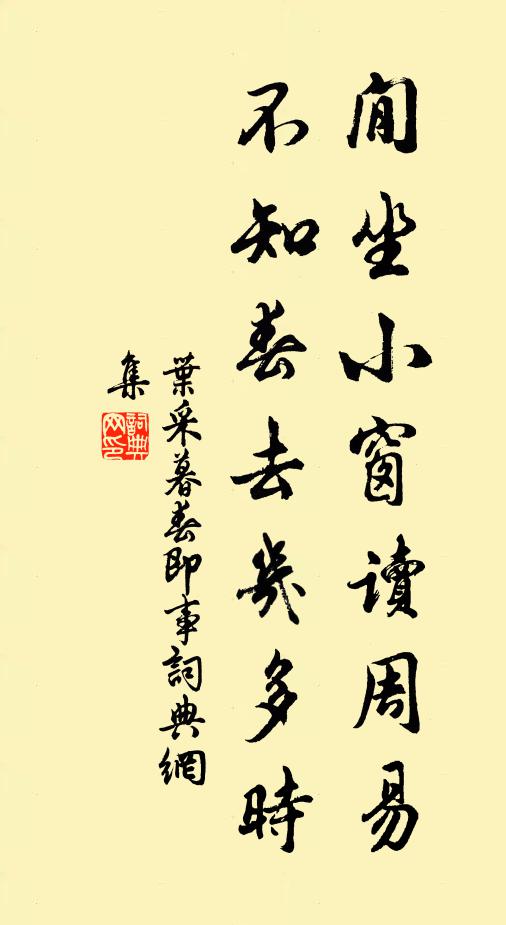 閒坐小窗讀周易
不知春去幾多時
葉采暮春即事詞典網
集
詞典
網印